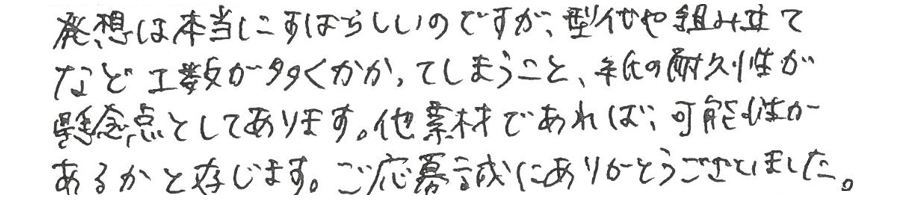 発想は本当にすばらしいのですが、型代や組み立て
など工数が多くかかってしまうこと、紙の耐久性が
懸念点としてあります。他素材であれば、可能性が
あるかと存じます。ご応募誠にありがとうございました。